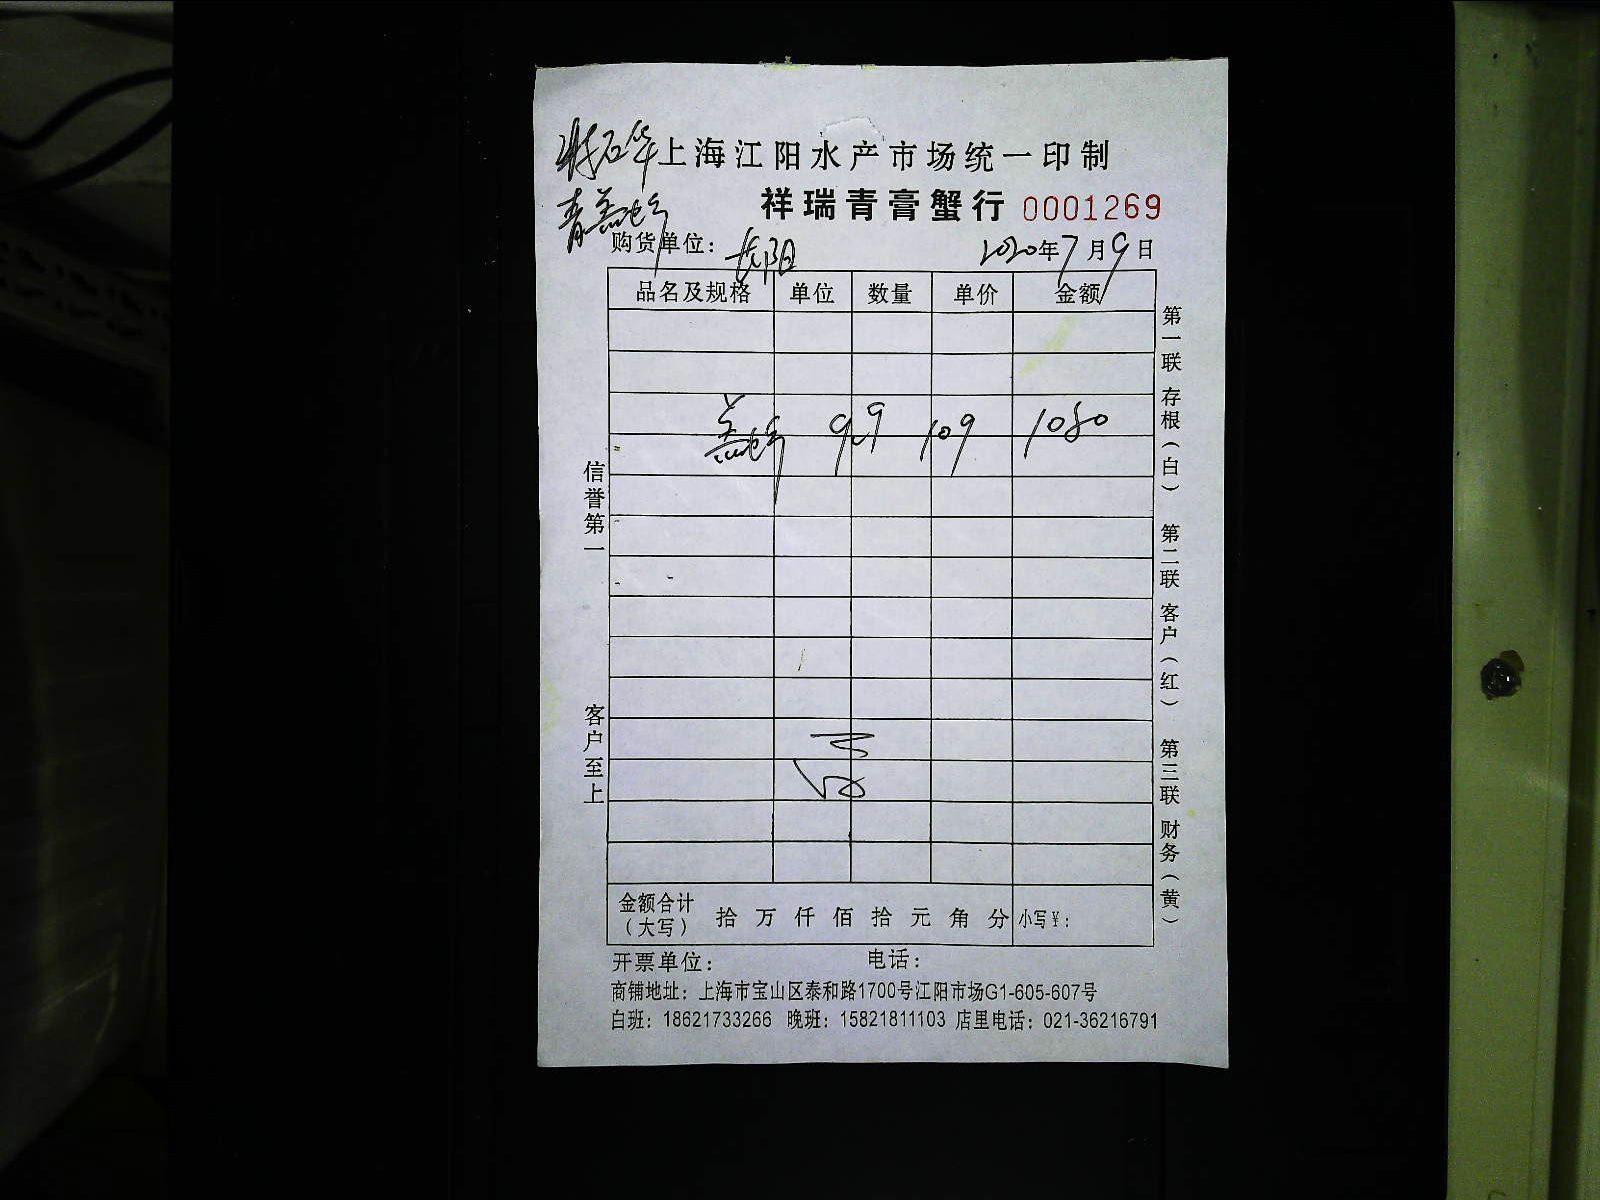 上海江阳水产市场统一印制
祥瑞青膏蟹行 0001269
购货单位：
2020年7月9日
品名及规格 单位 数量 单价 金额
9.9 109 1080
信誉第一
客户至上
第一联 存根（白） 第二联 客户（红） 第三联 财务（黄）
金额合计（大写） 拾 万 仟 佰 拾 元 角 分 小写￥：
开票单位： 电话：
商铺地址：上海市宝山区泰和路1700号江阳市场G1-605-607号
白班：18621733266 晚班：15821811103 店里电话：021-36216791